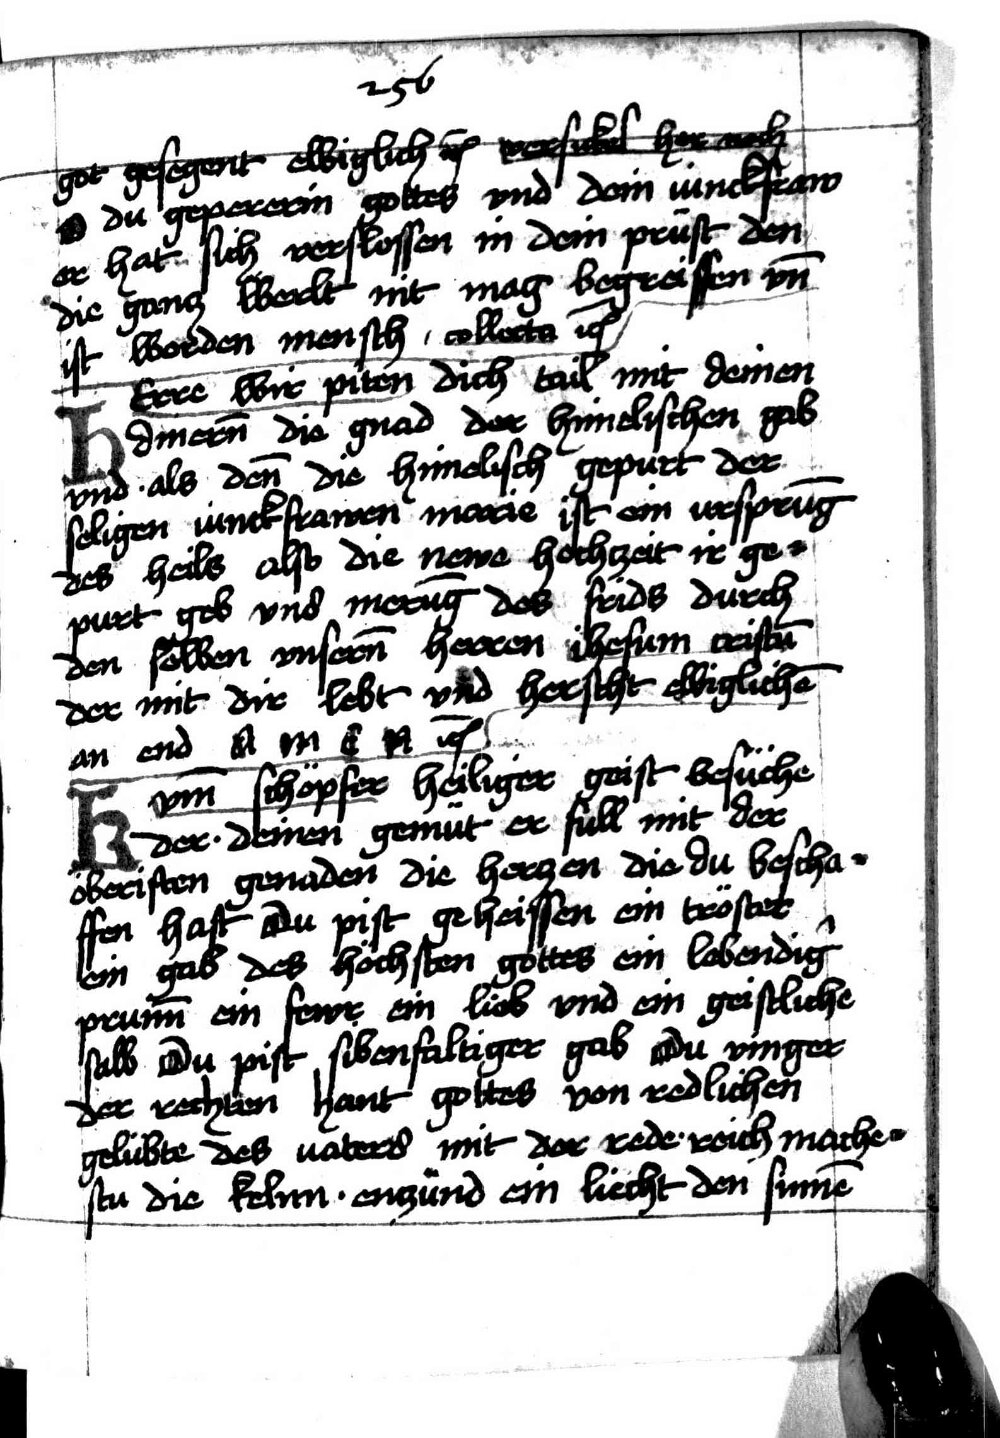 256
got gesegent ewiglich versickel her nach
O du gepererin gottes vnd dein iunckfraw
er hat sich verslossen in dein prüst den
die gantz werlt nit mag begreiffen vn̄
ist worden mensch · collecta
HErre wir piten dich tail mit deinen
dinern̄ die gnad der himelischen gab
vnd · als den̄ die himelisch gepurt der
seligen iunckfrawen marie ist ein vrsprūg
des heils also die newe hochzeit ir ge=
purt geb vns merūg des frids durch
den selben vnsern̄ herren ihesum cristū
der mit dir lebt vnd herscht ewiglichē
an end A M E N
Kvm̄ schöpfer heiliger geist besüche
der · deinen gemüt er füll mit der
öberisten genaden die hertzen die du bescha=
ffen hast Du pist geheissen ein tröster
ein gab des höchsten gottes ein lebendig
prunn̄ ein fewr ein lieb vnd ein geistliche
salb Du pist sibenfaltiger gab Du vinger
der rechten hant gottes von redlichen
gelübte des vaters mit der rede · reich mache=
stu die keln · enzünd ein liecht den sinnē